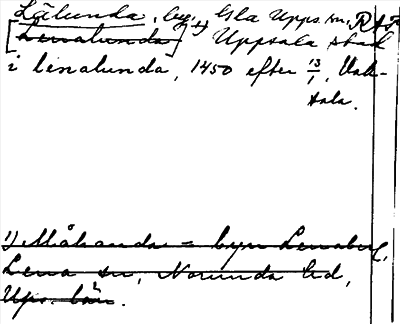 Lälunda, by, 1) Gla Upps. sn, RAP
[Lenalunda] Uppsala stad
i linalunda, 1450 efter 13/1, Vak-
sala.
1) Måhanda = byn Lenaberg,
Lena sn, Norunda hd,
Upps. län.